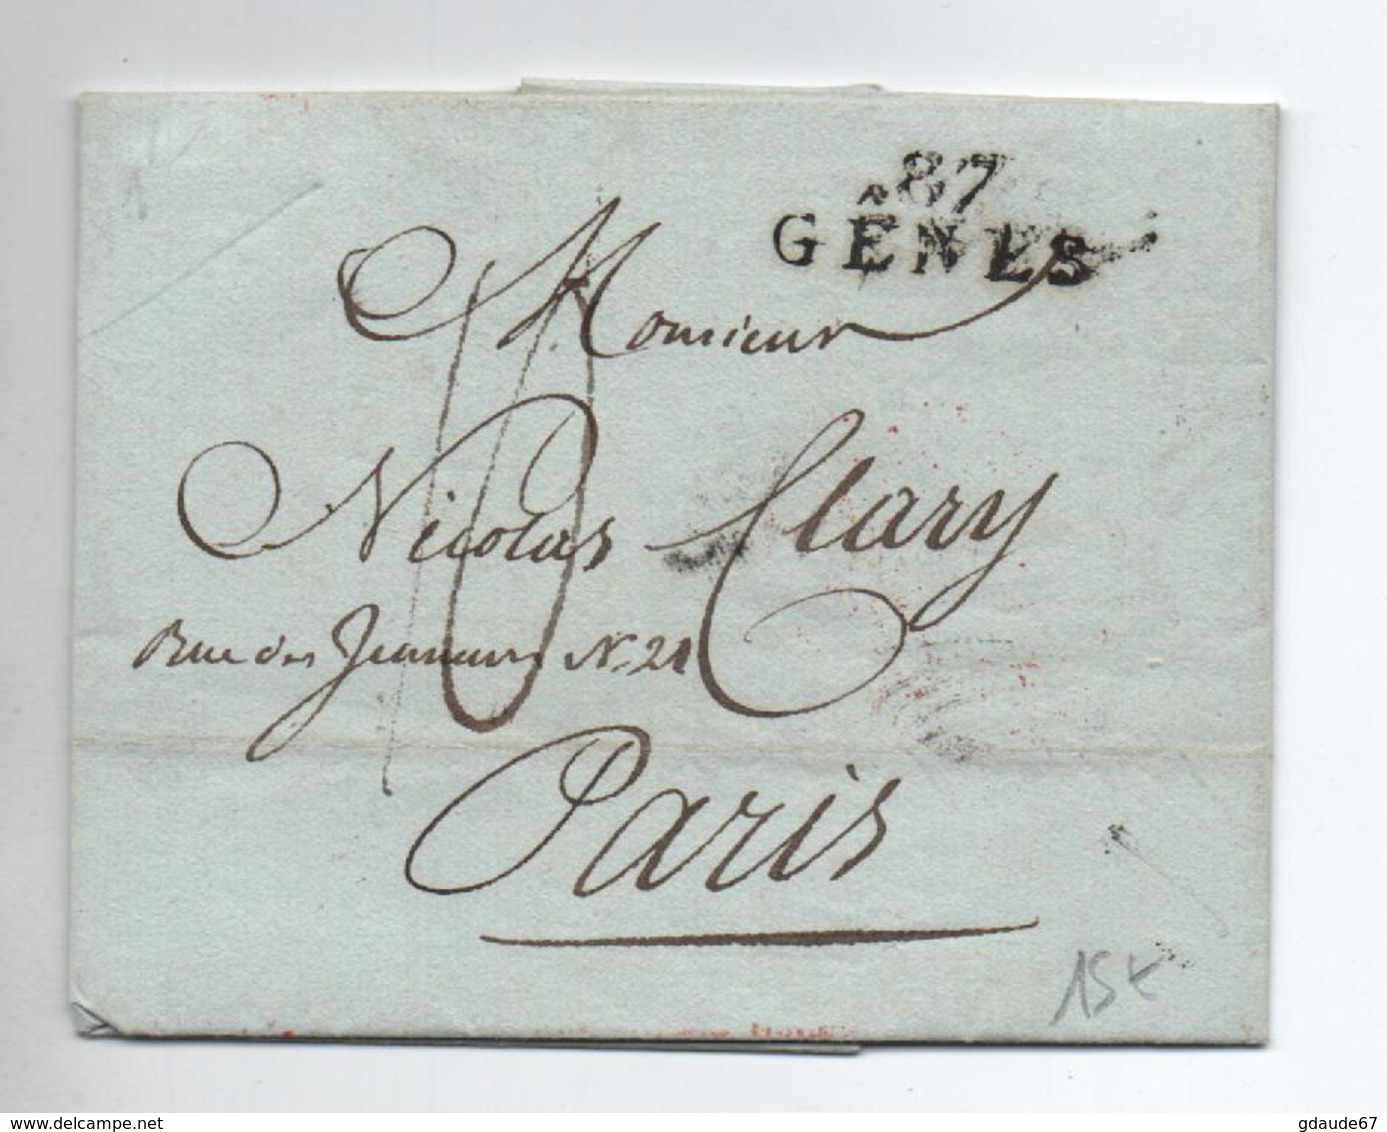 87
GÊNES
Monsieur
Nicolas Clary
Rue des Jeuneurs N. 21
Paris
15€
www.delcampe.net
gdaude67